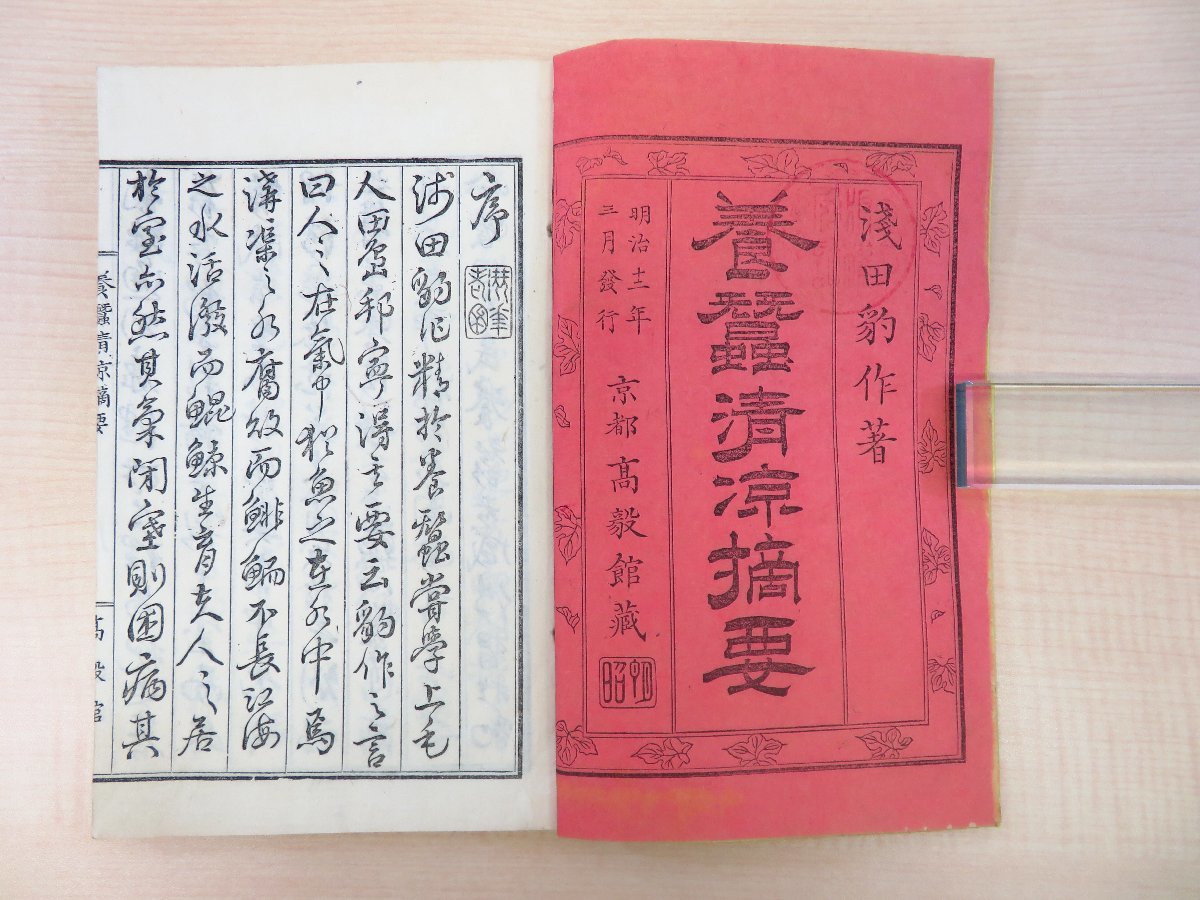 淺田豹作著
養蠶清凉摘要
明治十二年
三月發行
京都高毅館藏
序
浅田豹作精於養蠶嘗學上毛
人田島邦寧得其要云豹作之言
曰人之在氣中猶魚之在水中焉
溝渠之水腐敗而鯡鯿不長江海
之水活潑而鯤鯨生育夫人之居
於室亦然其氣閉塞則困病其
養蠶清凉摘要
高毅館